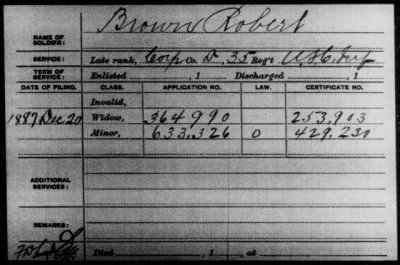 Brown Robert
NAME OF SOLDIER:
SERVICE: Late rank, Corp Co. D, 35 Reg't U.S.C. Inf
TERM OF SERVICE: Enlisted , 1 Discharged , 1
DATE OF FILING. CLASS. APPLICATION NO. LAW. CERTIFICATE NO.
Invalid,
1887 Dec 20 Widow, 364990 253,903
Minor, 633,326 0 429,230
ADDITIONAL SERVICES:
REMARKS:
Died , 1 , at